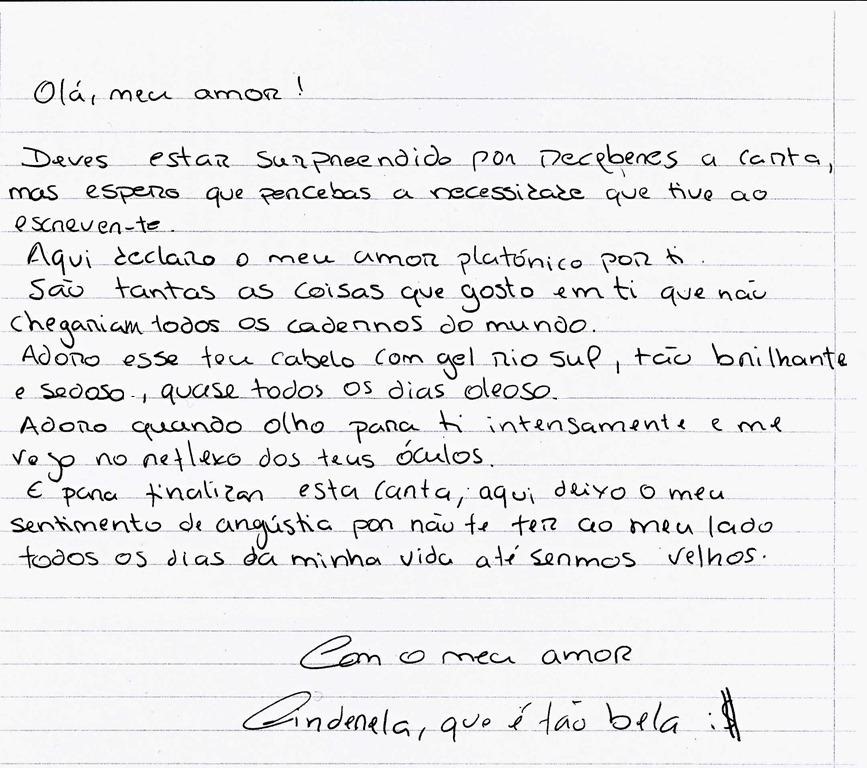 Olá, meu amor!
Deves estar surpreendido por receberes a carta,
mas espero que percebas a necessidade que tive ao
escrever-te.
Aqui declaro o meu amor platónico por ti.
São tantas as coisas que gosto em ti que não
chegariam todos os cadernos do mundo.
Adoro esse teu cabelo com gel rio sul, tão brilhante
e sedoso, quase todos os dias oleoso.
Adoro quando olho para ti intensamente e me
vejo no reflexo dos teus óculos.
E para finalizar esta carta, aqui deixo o meu
sentimento de angústia por não te ter ao meu lado
todos os dias da minha vida até sermos velhos.
Com o meu amor
Cinderela, que é tão bela :$